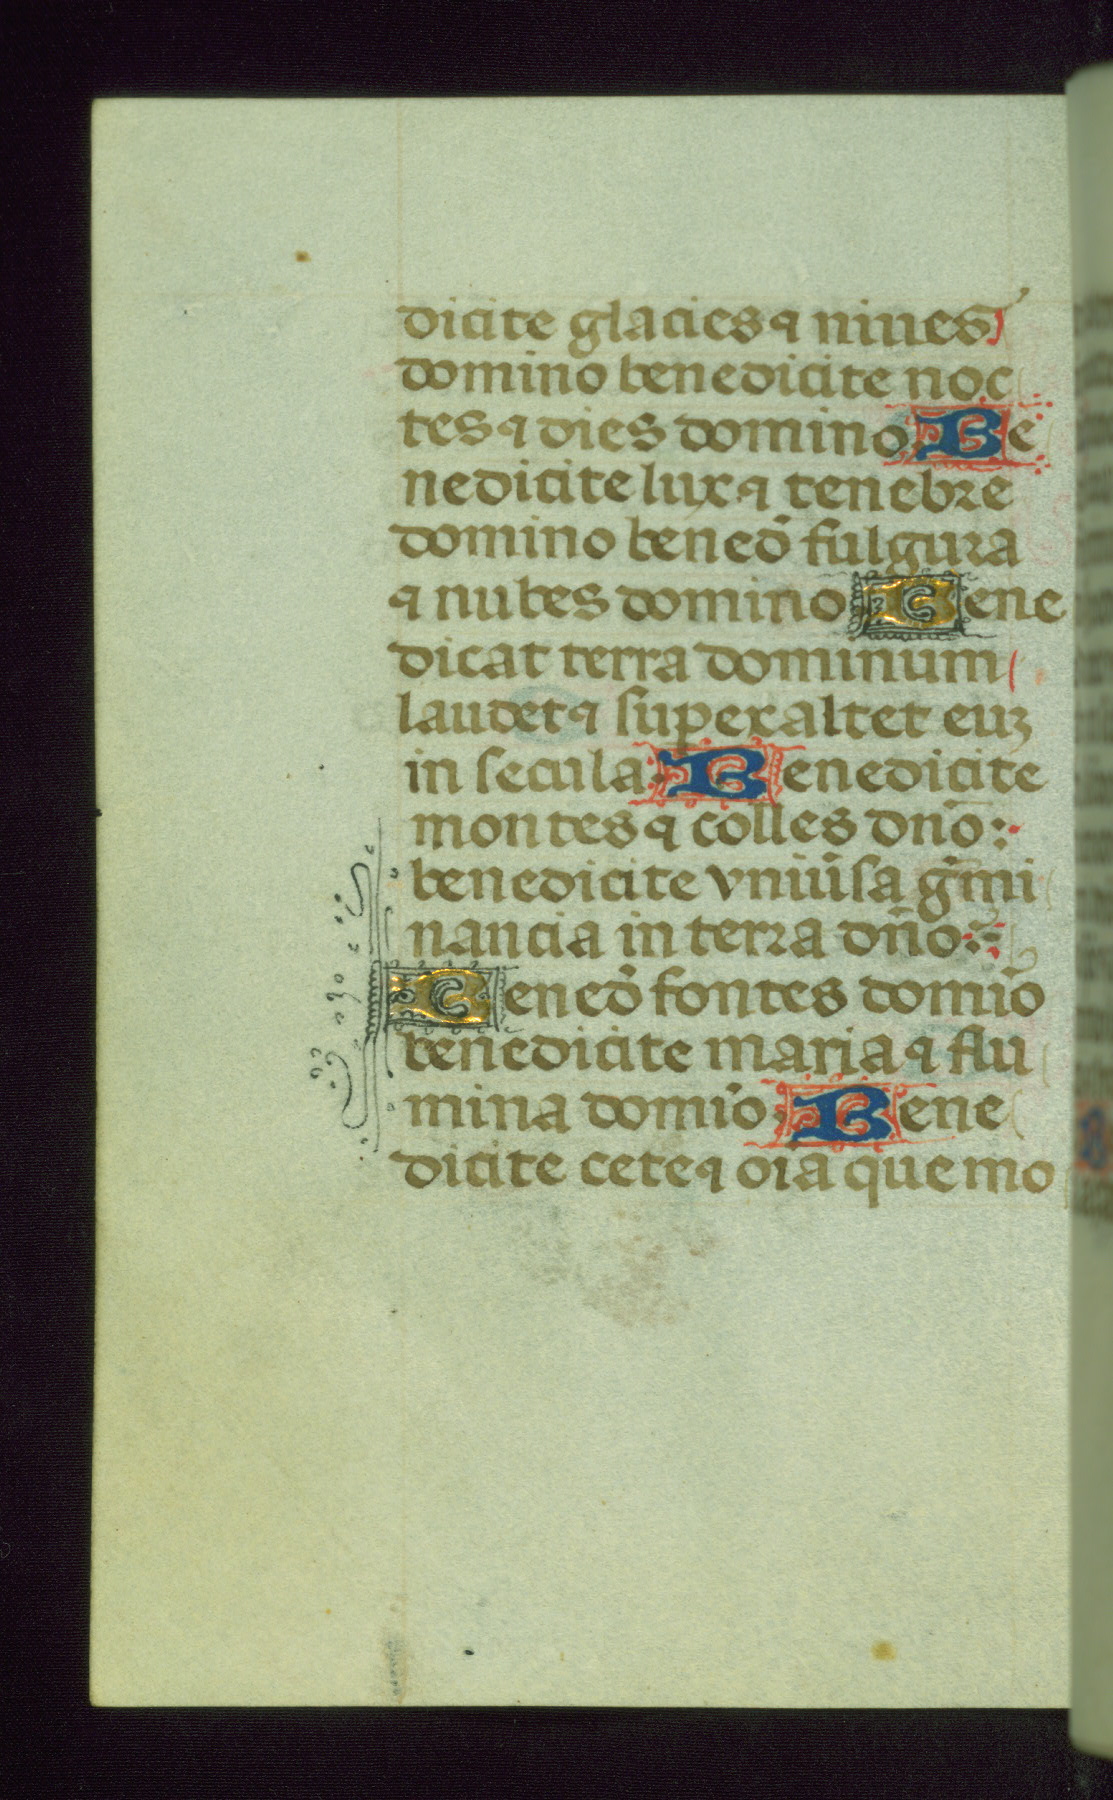 dicite glacies ⁊ niues
domino benedicite noc
tes ⁊ dies domino. Be
nedicite lux ⁊ tenebre
domino bened̄ fulgura
⁊ nubes domino Bene
dicat terra dominum
laudet ⁊ superexaltet euꝫ
in secula. Benedicite
montes ⁊ colles dn̄o:
benedicite vniu̅sa g̅mi
nancia in terra dn̄o:
Bened̄ fontes domīo
benedicite maria ⁊ flu
mina domīo. Bene
dicite cete ⁊ oīa que mo